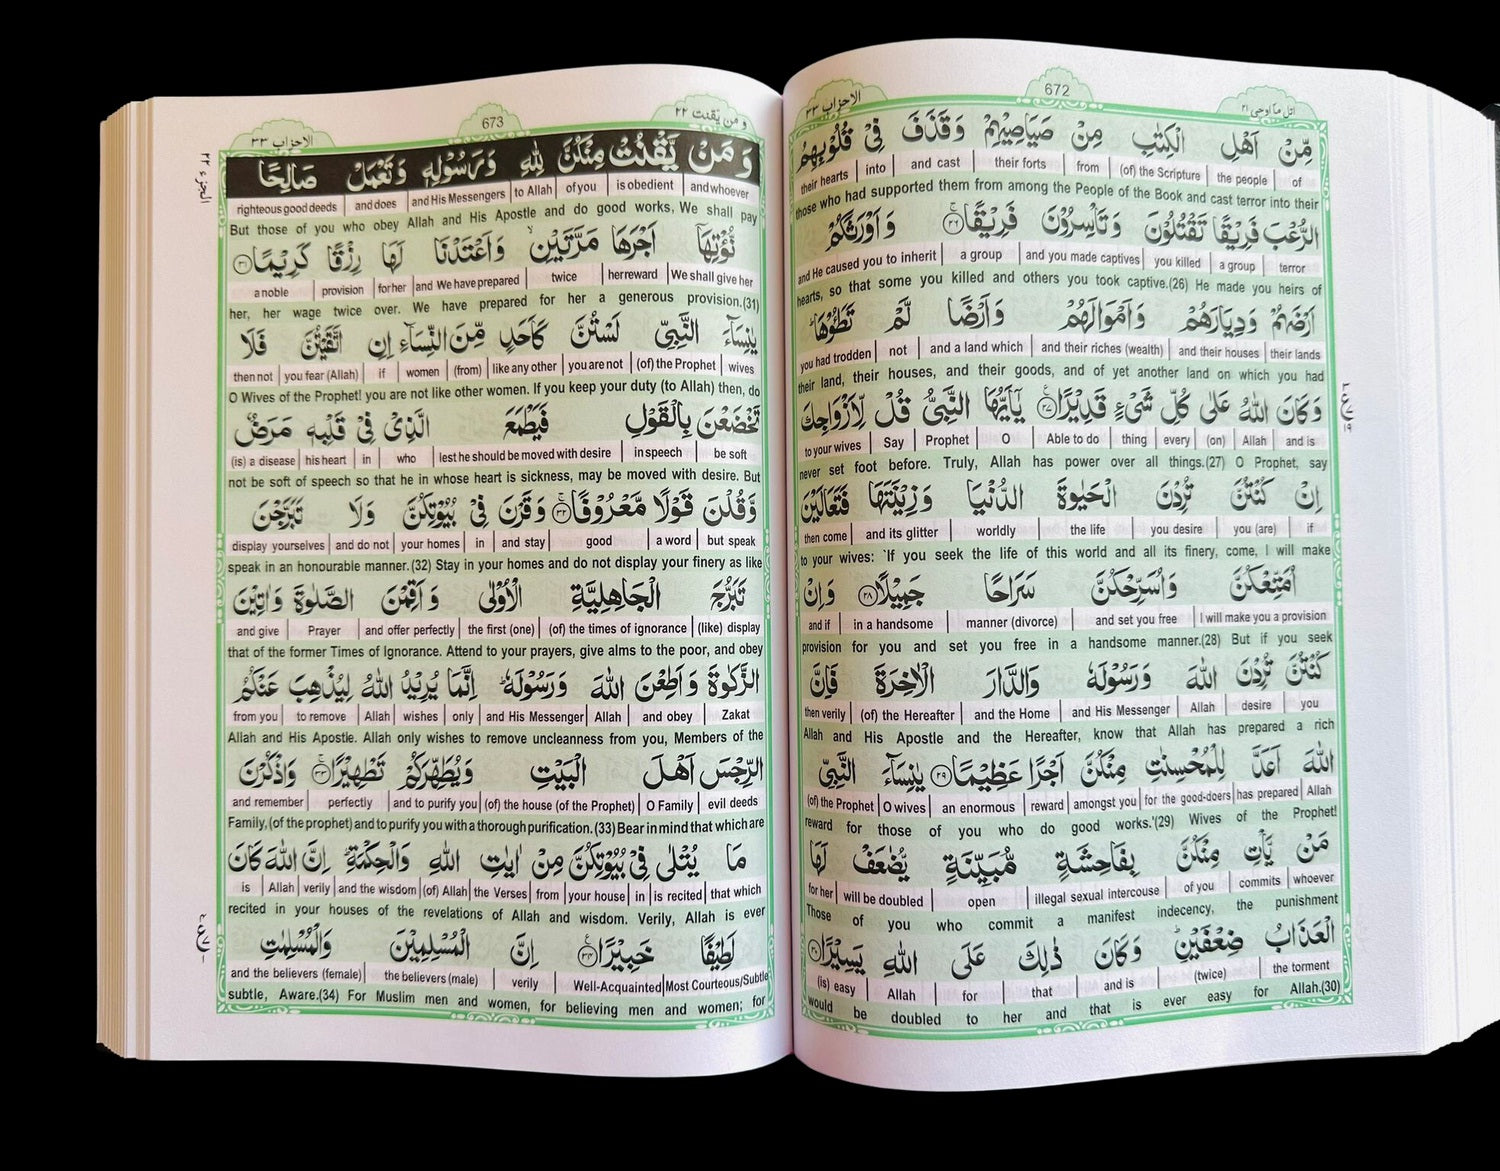 الاحزاب ٣٣
672
اتل ما اوحی ٢١
مِّنْ اَهْلِ الْكِتٰبِ مِنْ صَيَاصِيْهِمْ وَقَذَفَ فِىْ قُلُوْبِهِمُ
of | the people | (of) the Scripture | from | their forts | and cast | into | their hearts
those who had supported them from among the People of the Book and cast terror into their
الرُّعْبَ فَرِيْقًا تَقْتُلُوْنَ وَتَأْسِرُوْنَ فَرِيْقًا ۚ ﴿٢٦﴾ وَ اَوْرَثَكُمْ
terror | a group | you killed | and you made captives | a group | and He caused you to inherit
hearts, so that some you killed and others you took captive.(26) He made you heirs of
اَرْضَهُمْ وَدِيَارَهُمْ وَاَمْوَالَهُمْ وَاَرْضًا لَّمْ تَطَـُٔوْهَا ؕ
their lands | and their houses | and their riches (wealth) | and a land which | not | you had trodden
their land, their houses, and their goods, and of yet another land on which you had
وَكَانَ اللهُ عَلٰى كُلِّ شَىْءٍ قَدِيْرًا ﴿٢٧﴾ يٰۤاَيُّهَا النَّبِىُّ قُلْ لِّاَزْوَاجِكَ
and is | Allah | (on) | every | thing | Able to do | O | Prophet | Say | to your wives
never set foot before. Truly, Allah has power over all things.(27) O Prophet, say
اِنْ كُنْتُنَّ تُرِدْنَ الْحَيٰوةَ الدُّنْيَا وَزِيْنَتَهَا فَتَعَالَيْنَ
if | you (are) | you desire | the life | worldly | and its glitter | then come
to your wives: `If you seek the life of this world and all its finery, come, I will make
اُمَتِّعْكُنَّ وَاُسَرِّحْكُنَّ سَرَاحًا جَمِيْلًا ﴿٢٨﴾ وَاِنْ
I will make you a provision | and set you free | manner (divorce) | in a handsome | and if
provision for you and set you free in a handsome manner.(28) But if you seek
كُنْتُنَّ تُرِدْنَ اللهَ وَرَسُوْلَهٗ وَالدَّارَ الْاٰخِرَةَ فَاِنَّ
you | desire | Allah | and His Messenger | and the Home | (of) the Hereafter | then verily
Allah and His Apostle and the Hereafter, know that Allah has prepared a rich
اللهَ اَعَدَّ لِلْمُحْسِنٰتِ مِنْكُنَّ اَجْرًا عَظِيْمًا ﴿٢٩﴾ يٰنِسَآءَ النَّبِىِّ
Allah | has prepared | for the good-doers | amongst you | reward | an enormous | O wives | (of) the Prophet
reward for those of you who do good works.'(29) Wives of the Prophet!
مَنْ يَّاْتِ مِنْكُنَّ بِفَاحِشَةٍ مُّبَيِّنَةٍ يُّضٰعَفْ لَهَا
whoever | commits | of you | illegal sexual intercouse | open | will be doubled | for her
Those of you who commit a manifest indecency, the punishment
الْعَذَابُ ضِعْفَيْنِ ؕ وَكَانَ ذٰلِكَ عَلَى اللهِ يَسِيْرًا ﴿٣٠﴾
the torment | (twice) | and is | that | for | Allah | (is) easy
would be doubled to her and that is ever easy for Allah.(30)
الاحزاب ٣٣
673
و من يقنت ٢٢
وَ مَنْ يَّقْنُتْ مِنْكُنَّ لِلهِ وَ رَسُوْلِهٖ وَ تَعْمَلْ صَالِحًا
and whoever | is obedient | of you | to Allah | and His Messengers | and does | righteous good deeds
But those of you who obey Allah and His Apostle and do good works, We shall pay
نُّؤْتِهَاۤ اَجْرَهَا مَرَّتَيْنِ ۙ وَاَعْتَدْنَا لَهَا رِزْقًا كَرِيْمًا ﴿٣١﴾
We shall give her | her reward | twice | and We have prepared | for her | provision | a noble
her, her wage twice over. We have prepared for her a generous provision.(31)
يٰنِسَآءَ النَّبِىِّ لَسْتُنَّ كَاَحَدٍ مِّنَ النِّسَآءِ اِنِ اتَّقَيْتُنَّ فَلَا
wives | (of) the Prophet | you are not | like any other | (from) | women | if | you fear (Allah) | then not
O Wives of the Prophet! you are not like other women. If you keep your duty (to Allah) then, do
تَخْضَعْنَ بِالْقَوْلِ فَيَطْمَعَ الَّذِىْ فِىْ قَلْبِهٖ مَرَضٌ
be soft | in speech | lest he should be moved with desire | who | in | his heart | (is) a disease
not be soft of speech so that he in whose heart is sickness, may be moved with desire. But
وَّقُلْنَ قَوْلًا مَّعْرُوْفًا ﴿٣٢﴾ وَقَرْنَ فِىْ بُيُوْتِكُنَّ وَلَا تَبَرَّجْنَ
but speak | a word | good | and stay | in | your homes | and do not | display yourselves
speak in an honourable manner.(32) Stay in your homes and do not display your finery as like
تَبَرُّجَ الْجَاهِلِيَّةِ الْاُوْلٰى وَ اَقِمْنَ الصَّلٰوةَ وَ اٰتِيْنَ
(like) display | (of) the times of ignorance | the first (one) | and offer perfectly | Prayer | and give
that of the former Times of Ignorance. Attend to your prayers, give alms to the poor, and obey
الزَّكٰوةَ وَ اَطِعْنَ اللهَ وَرَسُوْلَهٗ ؕ اِنَّمَا يُرِيْدُ اللهُ لِيُذْهِبَ عَنْكُمُ
Zakat | and obey | Allah | and His Messenger | only | wishes | Allah | to remove | from you
Allah and His Apostle. Allah only wishes to remove uncleanness from you, Members of the
الرِّجْسَ اَهْلَ الْبَيْتِ وَيُطَهِّرَكُمْ تَطْهِيْرًا ﴿٣٣﴾ وَاذْكُرْنَ
evil deeds | O Family | (of) the house (of the Prophet) | and to purify you | perfectly | and remember
Family, (of the prophet) and to purify you with a thorough purification.(33) Bear in mind that which are
مَا يُتْلٰى فِىْ بُيُوْتِكُنَّ مِنْ اٰيٰتِ اللهِ وَالْحِكْمَةِ ؕ اِنَّ اللهَ كَانَ
that which | is recited | in | your house | from | the Verses | (of) Allah | and the wisdom | verily | Allah | is
recited in your houses of the revelations of Allah and wisdom. Verily, Allah is ever
لَطِيْفًا خَبِيْرًا ﴿٣٤﴾ اِنَّ الْمُسْلِمِيْنَ وَالْمُسْلِمٰتِ
Most Courteous/Subtle | Well-Acquainted | verily | the believers (male) | and the believers (female)
subtle, Aware.(34) For Muslim men and women, for believing men and women; for